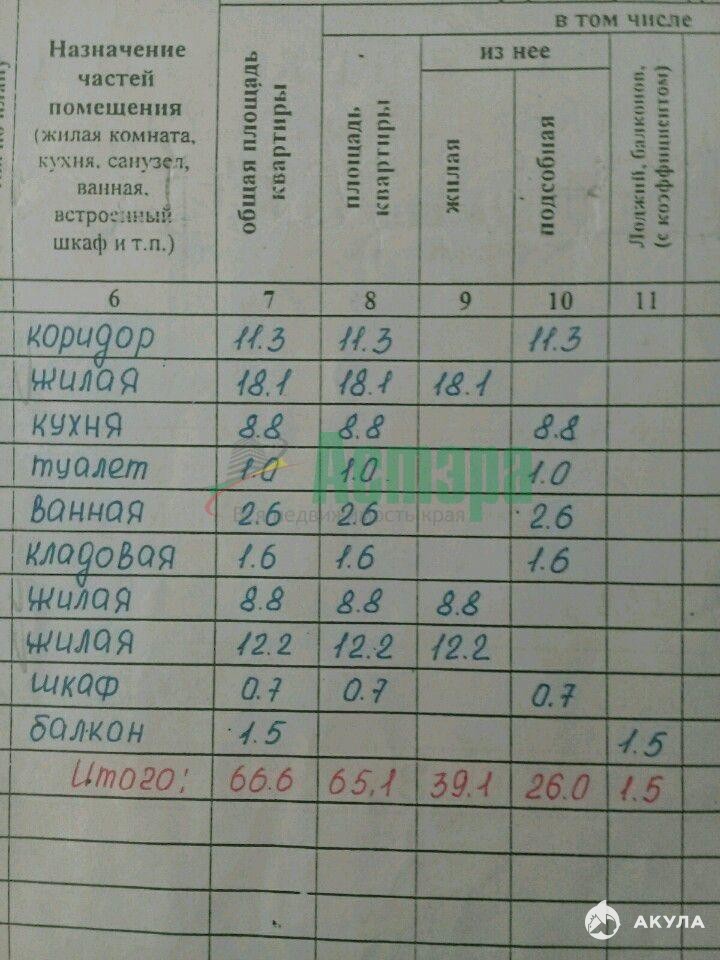 в том числе
из нее
Назначение
частей
помещения
(жилая комната,
кухня, санузел,
ванная,
встроенный
шкаф и т.п.)
общая площадь
квартиры
площадь
квартиры
жилая
подсобная
Лоджий, балконов,
(с коэффициентом)
6 7 8 9 10 11
коридор 11.3 11.3 11.3
жилая 18.1 18.1 18.1
кухня 8.8 8.8 8.8
туалет 1.0 1.0 1.0
ванная 2.6 2.6 2.6
кладовая 1.6 1.6 1.6
жилая 8.8 8.8 8.8
жилая 12.2 12.2 12.2
шкаф 0.7 0.7 0.7
балкон 1.5 1.5
Итого: 66.6 65.1 39.1 26.0 1.5
Астэра
Вся недвижимость края
АКУЛА